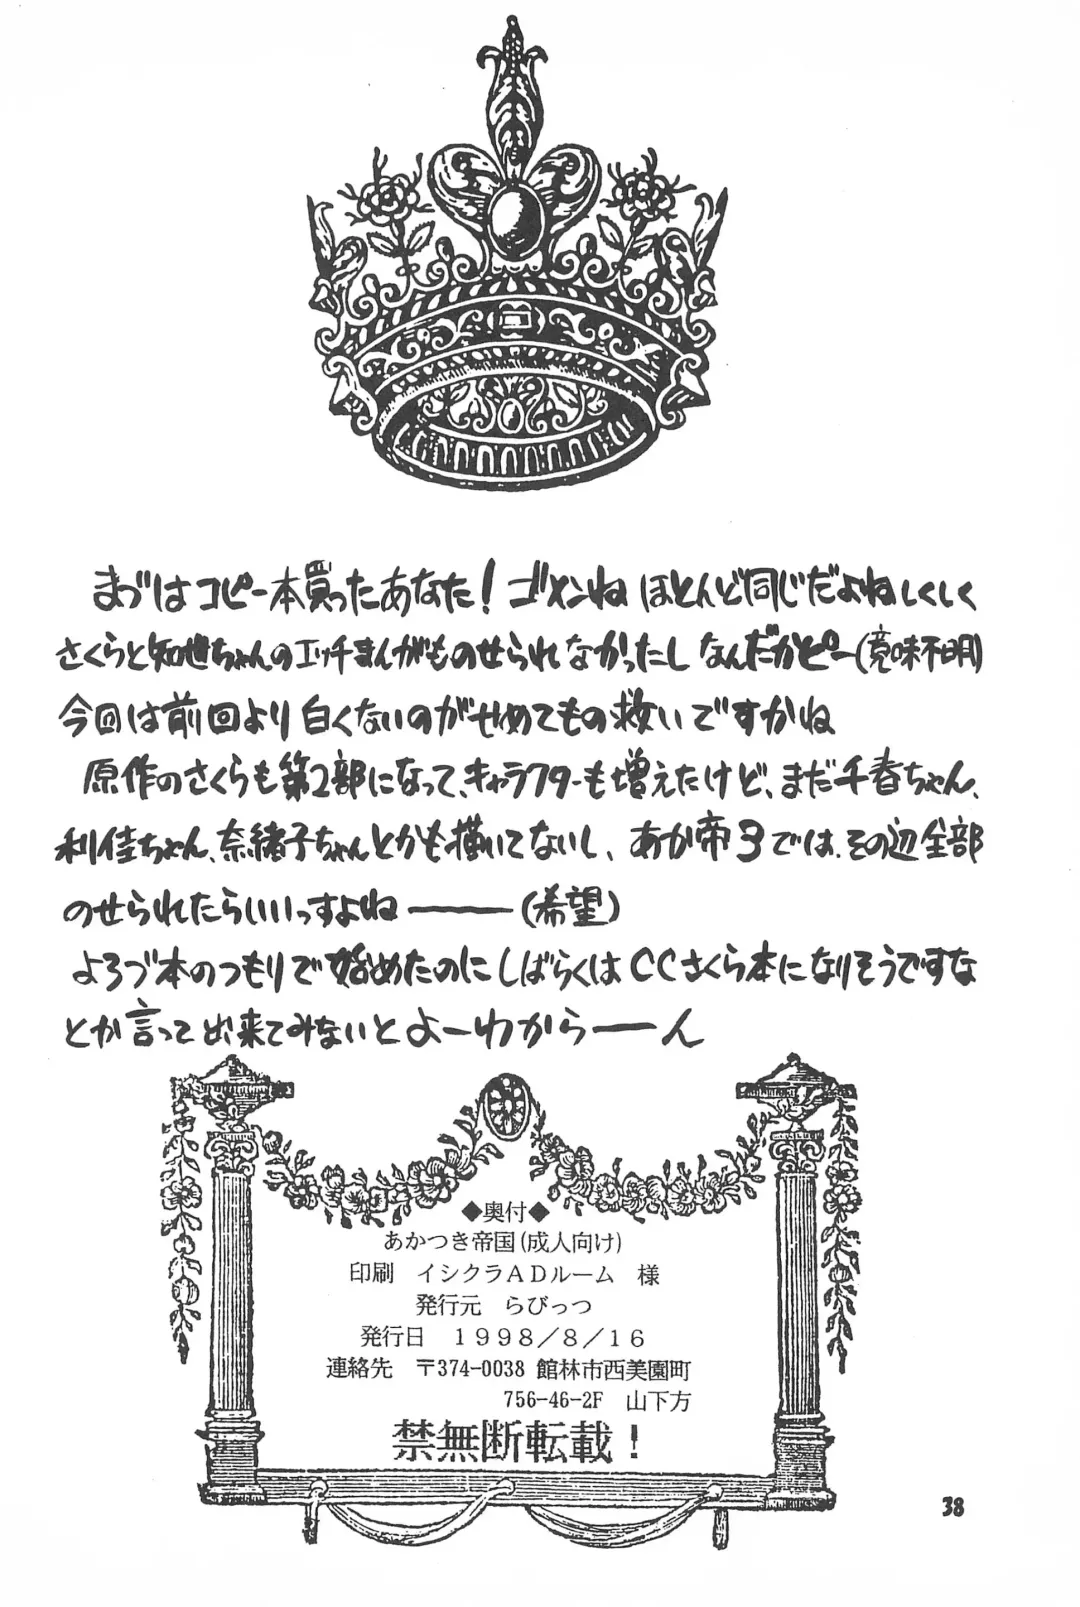 まづはコピー本買ったあなた!ゴメンねほとんど同じだよねしくしく
さくらと知世ちゃんのエッチまんがものせられなかったしなんだかピー(意味不明)
今回は前回より白くないのがせめてもの救いですかね
原作のさくらも第2部になって、キャラクターも増えたけど、まだ千春ちゃん、
利佳ちゃん、奈緒子ちゃんとかも描いてないし、あか帝3では、その辺全部
のせられたらいいっすよね———(希望)
よろづ本のつもりで始めたのにしばらくはCCさくら本になりそうですな
とか言って出来てみないとよーわからーーん
◆奥付◆
あかつき帝国(成人向け)
印刷 イシクラADルーム 様
発行元 らびっつ
発行日 1998/8/16
連絡先 〒374-0038 館林市西美園町
756-46-2F 山下方
禁無断転載!
38